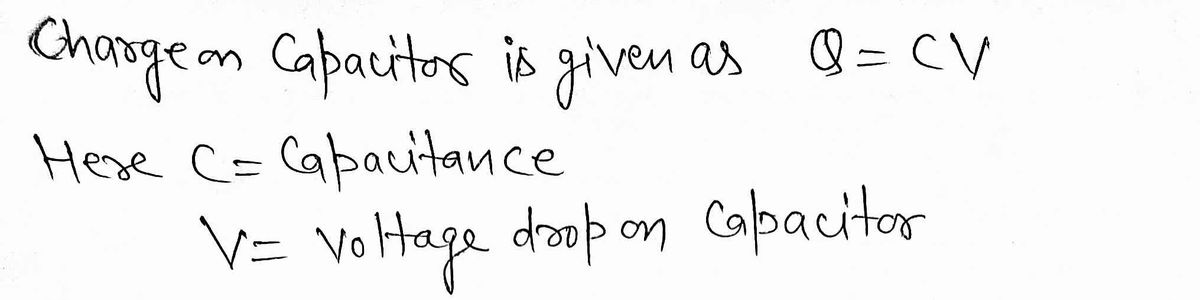 Charge on Capacitor is given as Q = CV
Here C = Capacitance
V = Voltage drop on Capacitor